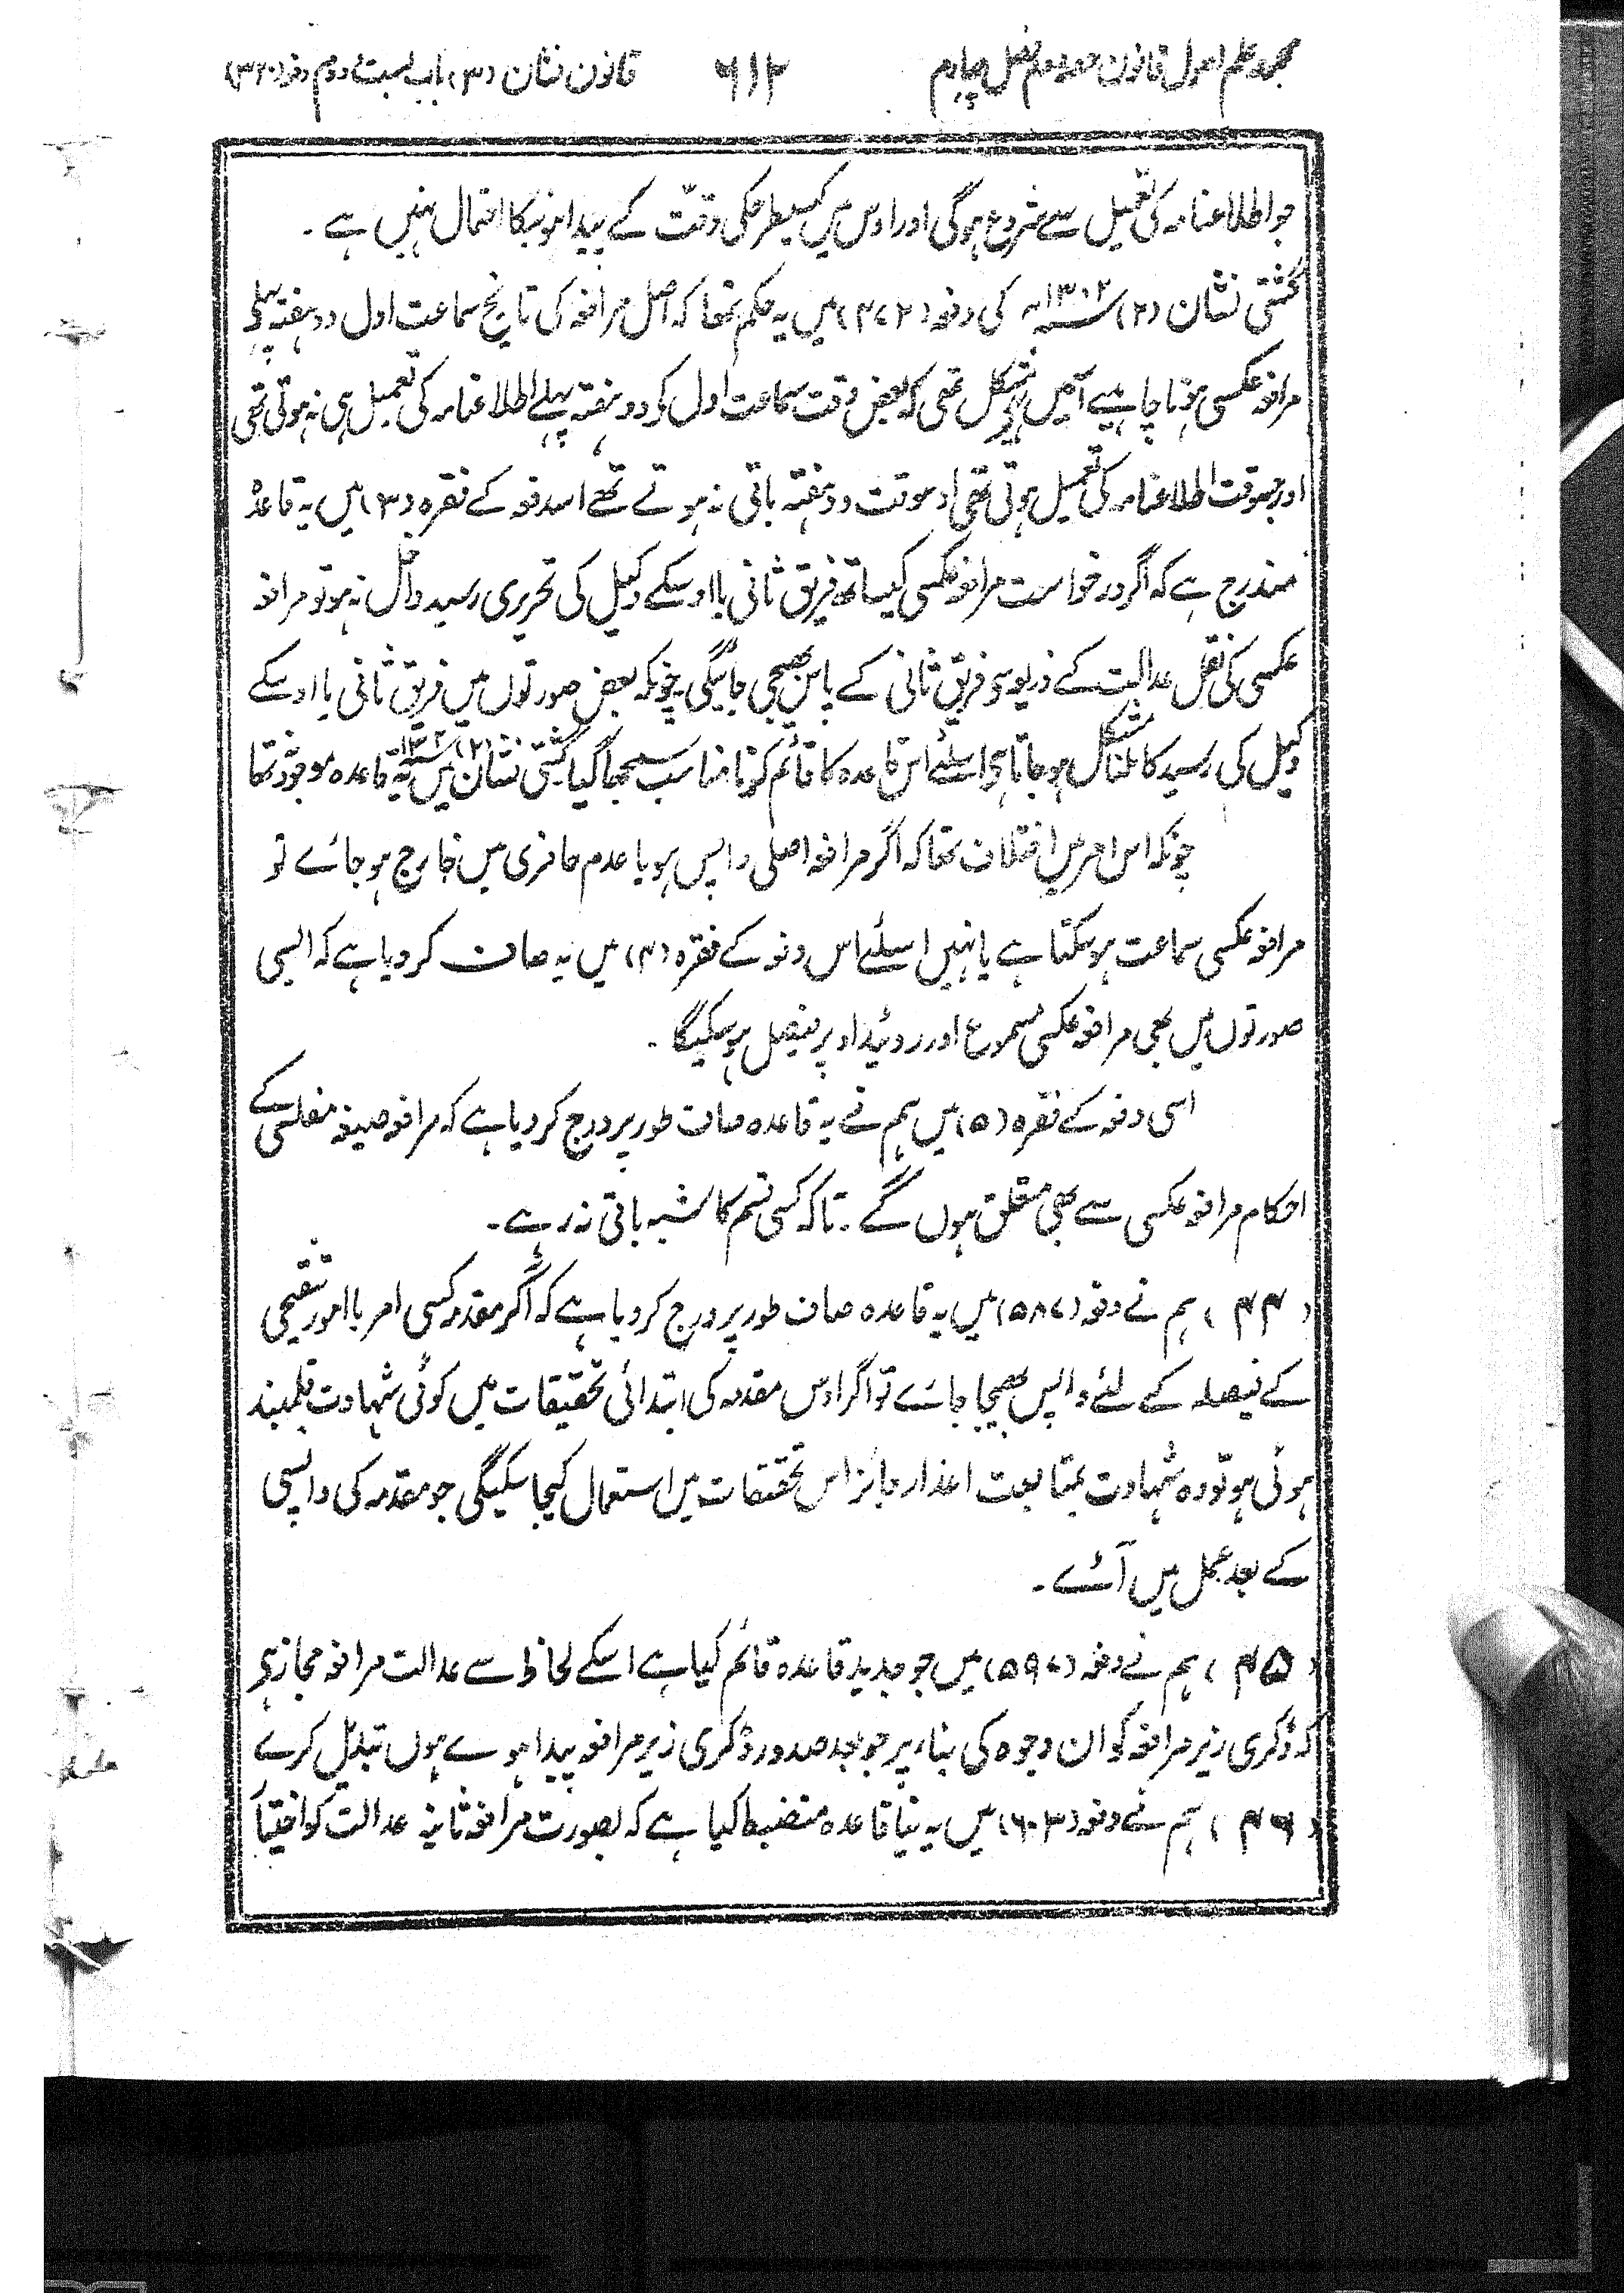 مجموعہ علم اصول قانون حصہ دوم فصل چہارم ۶۱۲ قانون نشان (۳) باب بست و دوم دفعہ (۳۲۰)
جو اطلاعنامہ کی تعمیل سے شروع ہوگی اور اوس میں کسیطرحکی دقت کے پیدا ہونیکا احتمال نہیں ہے ۔
گشتی نشان (۲) سنہ ۱۳۰۲ کی دفعہ (۴۷۲) میں یہ حکم تھا کہ اصل مرافعہ کی تاریخ سماعت اول دو ہفتہ پہلے
مرافعہ عکسی ہونا چاہیے اسمیں یہ مشکل تھی کہ بعض وقت سماعت اول کو دو ہفتہ پہلے اطلاعنامہ کی تعمیل ہی نہ ہوتی تھی
اور جسوقت اطلاعنامہ کی تعمیل ہوتی تھی اوسوقت دو ہفتہ باقی نہ ہوتے تھے اسدفعہ کے فقرہ (۳) میں یہ قاعدہ
مندرج ہے کہ اگر درخواست مرافعہ عکسی کیساتھ فریق ثانی یا اوسکے وکیل کی تحریری رسید داخل نہ ہو تو مرافعہ
عکسی کی نقل عدالت کے ذریعہ سے فریق ثانی کے پاس بھیجی جائیگی چونکہ بعض صورتوں میں فریق ثانی یا اوسکے
وکیل کی رسید کا ملنا مشکل ہوجاتا ہی اسلئے اس قاعدہ کا قائم کرنا مناسب سمجھا گیا گشتی نشان (۲) سنہ ۱۳۰۲ میں یہ قاعدہ موجود تھا
چونکہ اس امر میں اختلاف تھا کہ اگر مرافعہ اصلی واپس ہو یا عدم حاضری میں خارج ہو جائے تو
مرافعہ عکسی سماعت ہوسکتا ہے یا نہیں اسلئے اس دفعہ کے فقرہ (۴) میں یہ صاف کر دیا ہے کہ ایسی
صورتوں میں بھی مرافعہ عکسی مسموع اور روئداد پر فیصل ہوسکیگا ۔
اسی دفعہ کے فقرہ (۵) میں ہم نے یہ قاعدہ صاف طور پر درج کر دیا ہے کہ مرافعہ صیغہ مفلسی کے
احکام مرافعہ عکسی سے بھی متعلق ہوں گے ۔ تاکہ کسی قسم کا شبہ باقی نہ رہے ۔
(۴۴) ہم نے دفعہ (۵۸۷) میں یہ قاعدہ صاف طور پر درج کر دیا ہے کہ اگر مقدمہ کسی امر یا امور تنقیحی
کے فیصلہ کے لئے واپس بھیجا جائے تو اگر اوس مقدمہ کی ابتدائی تحقیقات میں کوئی شہادت قلمبند
ہوئی ہو تو وہ شہادت بمتابعت اعذار جائز اس تحقیقات میں استعمال کیجا سکیگی جو مقدمہ کی واپسی
کے بعد عمل میں آئے ۔
(۴۵) ہم نے دفعہ (۵۹۷) میں جو جدید قاعدہ قائم کیا ہے اسکے لحاظ سے عدالت مرافعہ مجاز ہی
کہ ڈگری زیر مرافعہ کو ان وجوہ کی بناء پر جو بعد صدور ڈگری زیر مرافعہ پیدا ہوے ہوں تبدیل کرے
(۴۶) ہم نے دفعہ (۶۰۳) میں یہ نیا قاعدہ منضبط کیا ہے کہ بصورت مرافعہ ثانیہ عدالت کو اختیا